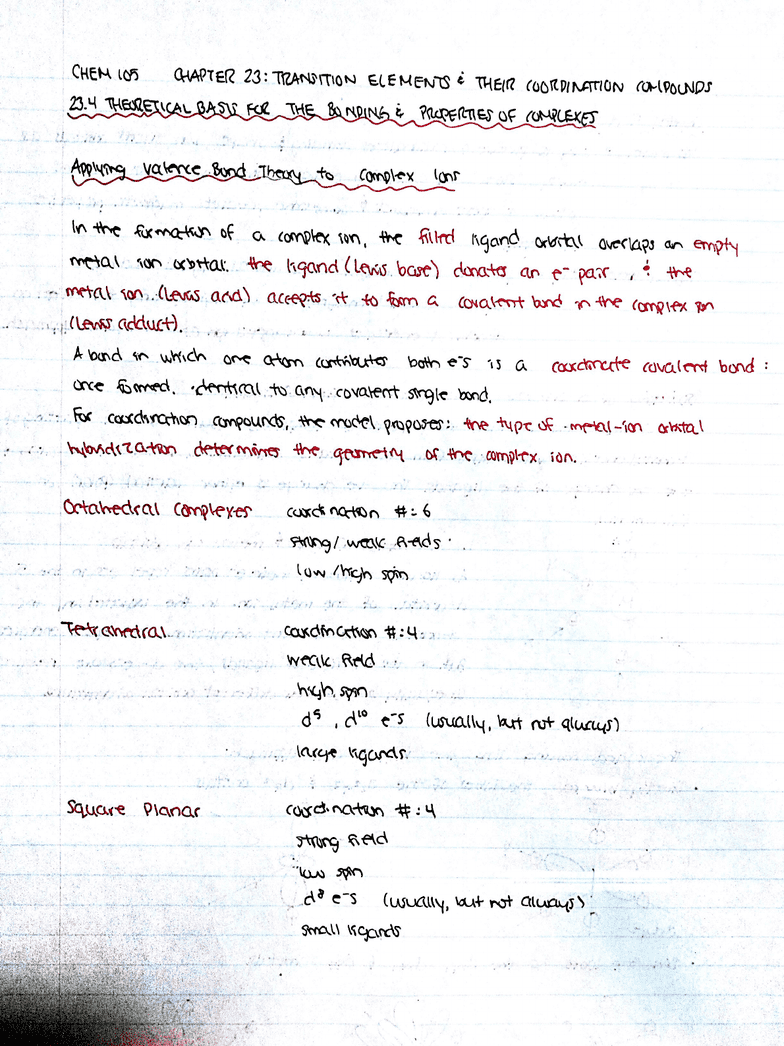 CHEM 105 CHAPTER 23: TRANSITION ELEMENTS & THEIR COORDINATION COMPOUNDS
23.4 THEORETICAL BASIS FOR THE BONDING & PROPERTIES OF COMPLEXES
Applying Valence Bond Theory to Complex Ions
In the formation of a complex ion, the filled ligand orbital overlaps an empty
metal ion orbital. the ligand (Lewis base) donates an e⁻ pair, & the
metal ion (Lewis acid) accepts it to form a covalent bond in the complex ion
(Lewis adduct).
A bond in which one atom contributes both e⁻s is a coordinate covalent bond:
once formed, identical to any covalent single bond.
For coordination compounds, the model proposes: the type of metal-ion orbital
hybridization determines the geometry of the complex ion.
Octahedral Complexes coordination #: 6
strong/weak fields
low/high spin
Tetrahedral coordination #: 4
weak field
high spin
d⁵, d¹⁰ e⁻s (usually, but not always)
large ligands
Square Planar coordination #: 4
strong field
low spin
d⁸ e⁻s (usually, but not always)
small ligands